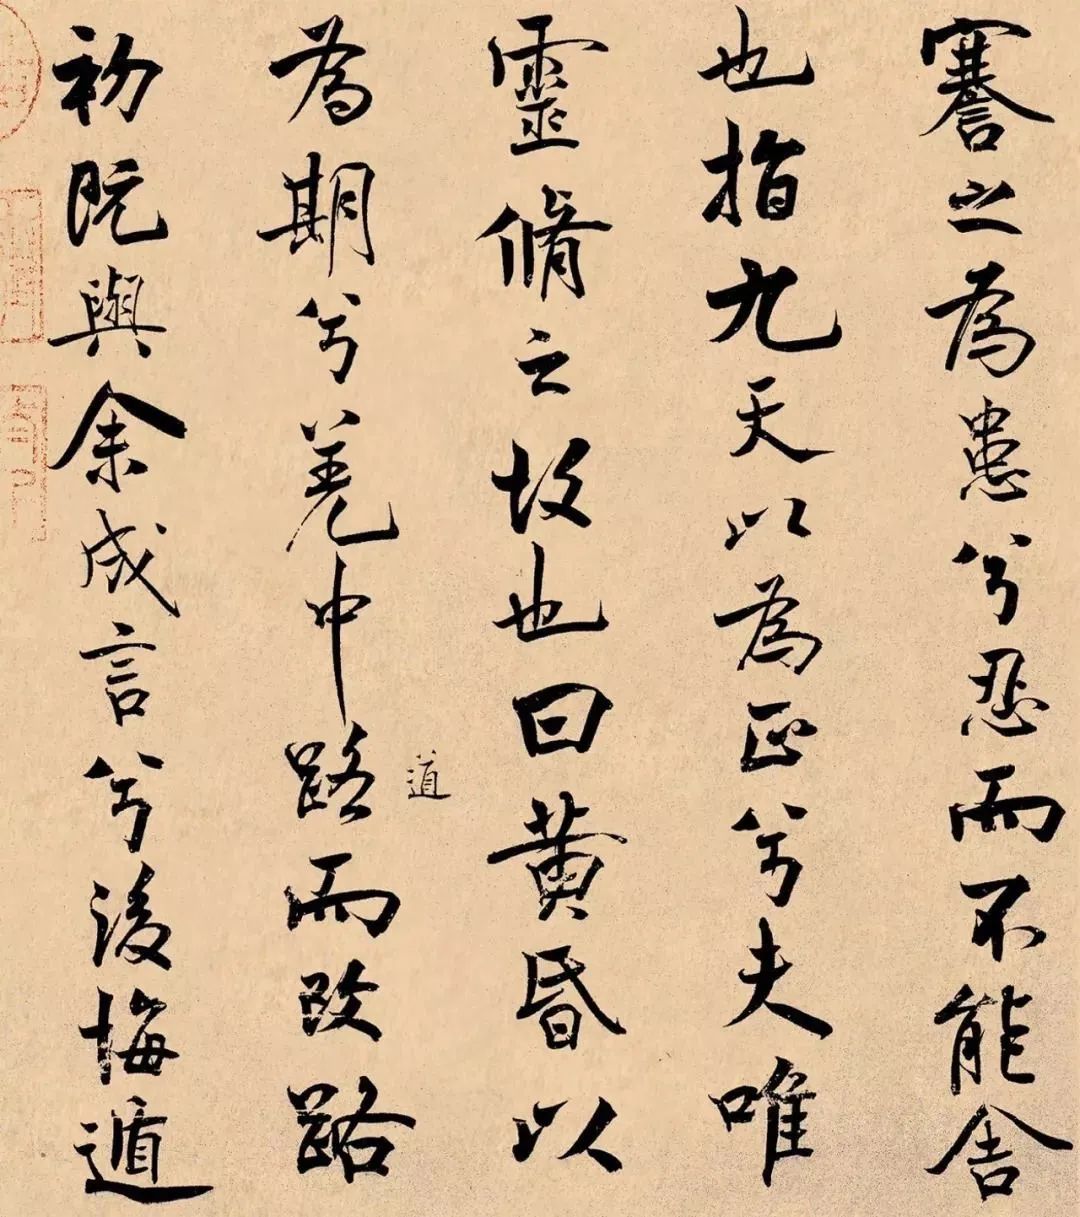 謇之為患兮忍而不能舍
也指九天以為正兮夫唯
靈脩之故也曰黃昏以
為期兮羌中路而改路
道
初既與余成言兮後悔遁